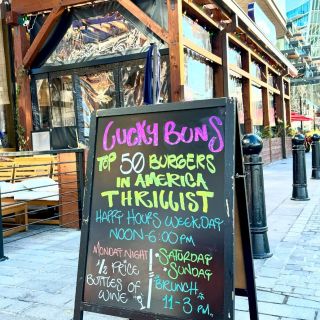 Lucky Buns
Top 50 Burgers
in America
Thrillist
Happy Hours Weekday
Noon-6:00 PM
Monday Night
1/2 Price
Bottles of
Wine
*Saturday
*Sunday
Brunch*
11-3 PM*